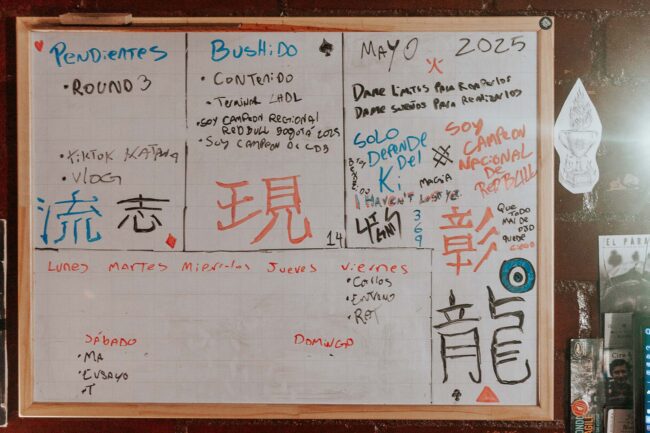 Pendientes
• Round 3
• TikTok Katana
• Vlog
流 志
Bushido
• Contenido
• Terminal LHDL
• Soy campeon regional
Red Bull Bogotá 2025
• Soy campeon de CDB
現
14
Mayo 2025
火
Dame límites para romperlos
Dame sueños para realizarlos
Solo
Depende
Del
Ki
Magia
I haven't lost yet
3
6
9
Soy
Campeon
Nacional
de
Red Bull
彰
Que
todo
mal de
ojo
quede
ciego
龍
Lunes Martes Miercoles Jueves Viernes
• Carlos
• Entreno
Sábado
• Ma
• Ensayo
• T
Domingo
El Para